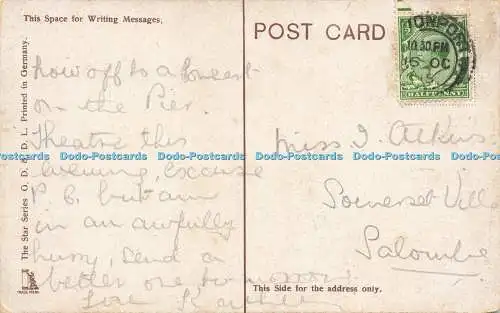 This Space for Writing Messages.
The Star Series G. D. & D. L. Printed in Germany.
now off to a Concert
on the Pier
Theatre this
evening, excuse
P.C. but am
in an awfully
hurry, send a
better one tomorrow
Love
TRADE MARK
POST CARD
HALFPENNY
10.30 PM
OC
Miss J. Atkins
Somerset Villa
Salombe
This Side for the address only.
Dodo-Postcards Dodo-Postcards Dodo-Postcards Dodo-Postcards Dodo-Postcards Dodo-Postcards